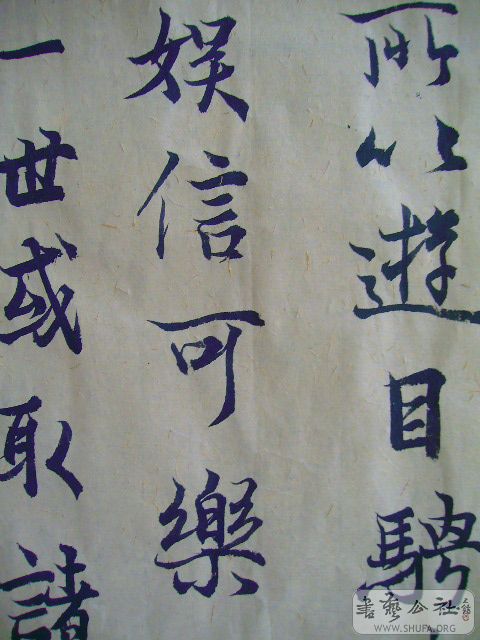 所以遊目騁
娱信可樂
一世或取諸
書藝公社
WWW.SHUFA.ORG